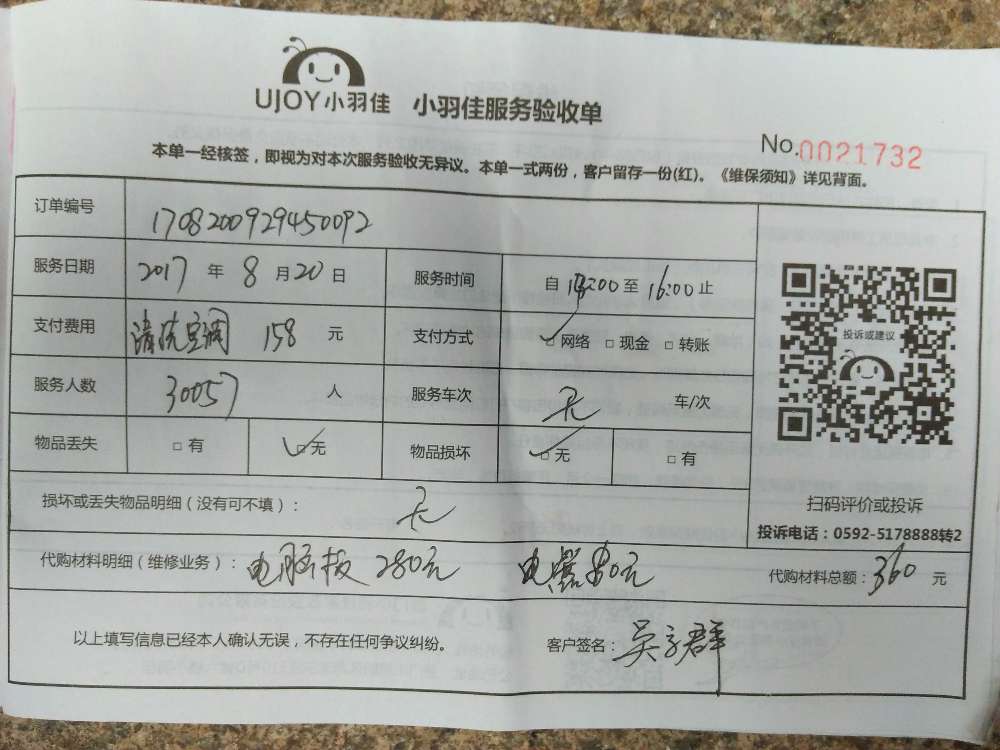 UJOY小羽佳 小羽佳服务验收单
No.0021732
本单一经核签，即视为对本次服务验收无异议。本单一式两份，客户留存一份(红)。《维保须知》详见背面。
订单编号 1708200929450092
服务日期 2017 年 8 月 20 日 服务时间 自 14:00 至 16:00 止
投诉或建议
支付费用 清洗空调 158 元 支付方式 □网络 □现金 □转账
服务人数 30057 人 服务车次 无 车/次
物品丢失 □有 □无 物品损坏 □无 □有
损坏或丢失物品明细（没有可不填）： 无
扫码评价或投诉
投诉电话：0592-5178888转2
代购材料明细（维修业务）： 电脑板 280元 电器 80元 代购材料总额： 360 元
以上填写信息已经本人确认无误，不存在任何争议纠纷。 客户签名： 吴 群